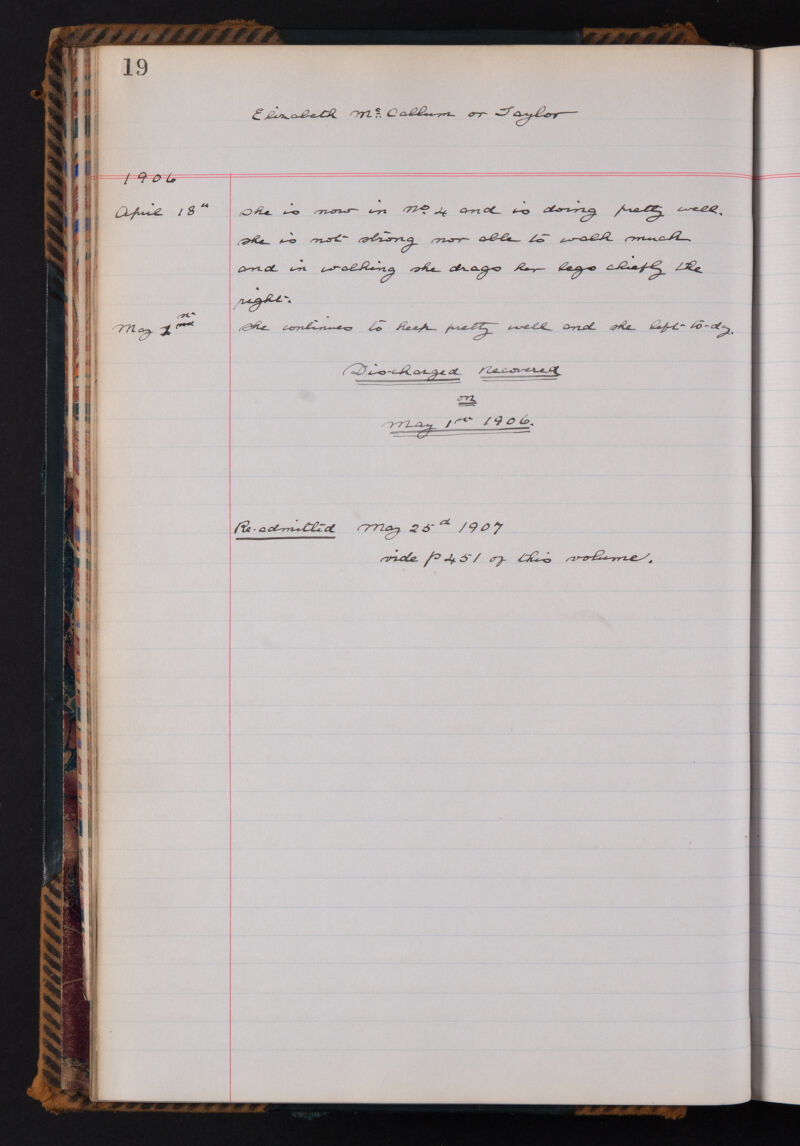 19
Elizabeth Mc. Callum or Taylor
1906
April 18th She is now in No. 4 and is doing pretty well.
She is not strong nor able to walk much
and in walking she drags her legs chiefly the
right.
May 1st She continues to keep pretty well and she left to-dy.
Discharged Recovered
on
May 1st 1906.
Re-admitted May 25d 1907
vide p 451 of this volume.